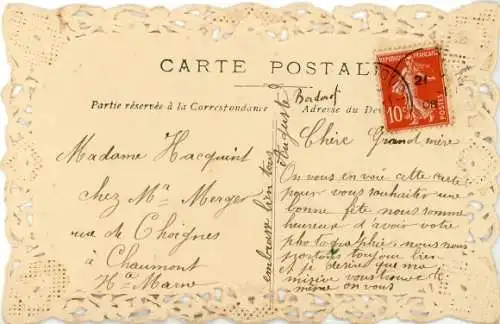 CARTE POSTALE
Partie réservée à la Correspondance
Adresse du Des
REPUBLIQUE FRANÇAISE
10c
POSTES
21
08
Madame Hacquint
chez Mr Merger
rue de Choignes
à Chaumont
Hte Marne
Chère Grand mère
On vous en voie cette carte
pour vous souhaiter une
bonne fête nous somme
heureux d'avoir votre
photographie, nous nous
portons toujour bien
et je désires que ma
misive vous trouve de
même on vous
embrasse bien tous
Auguste